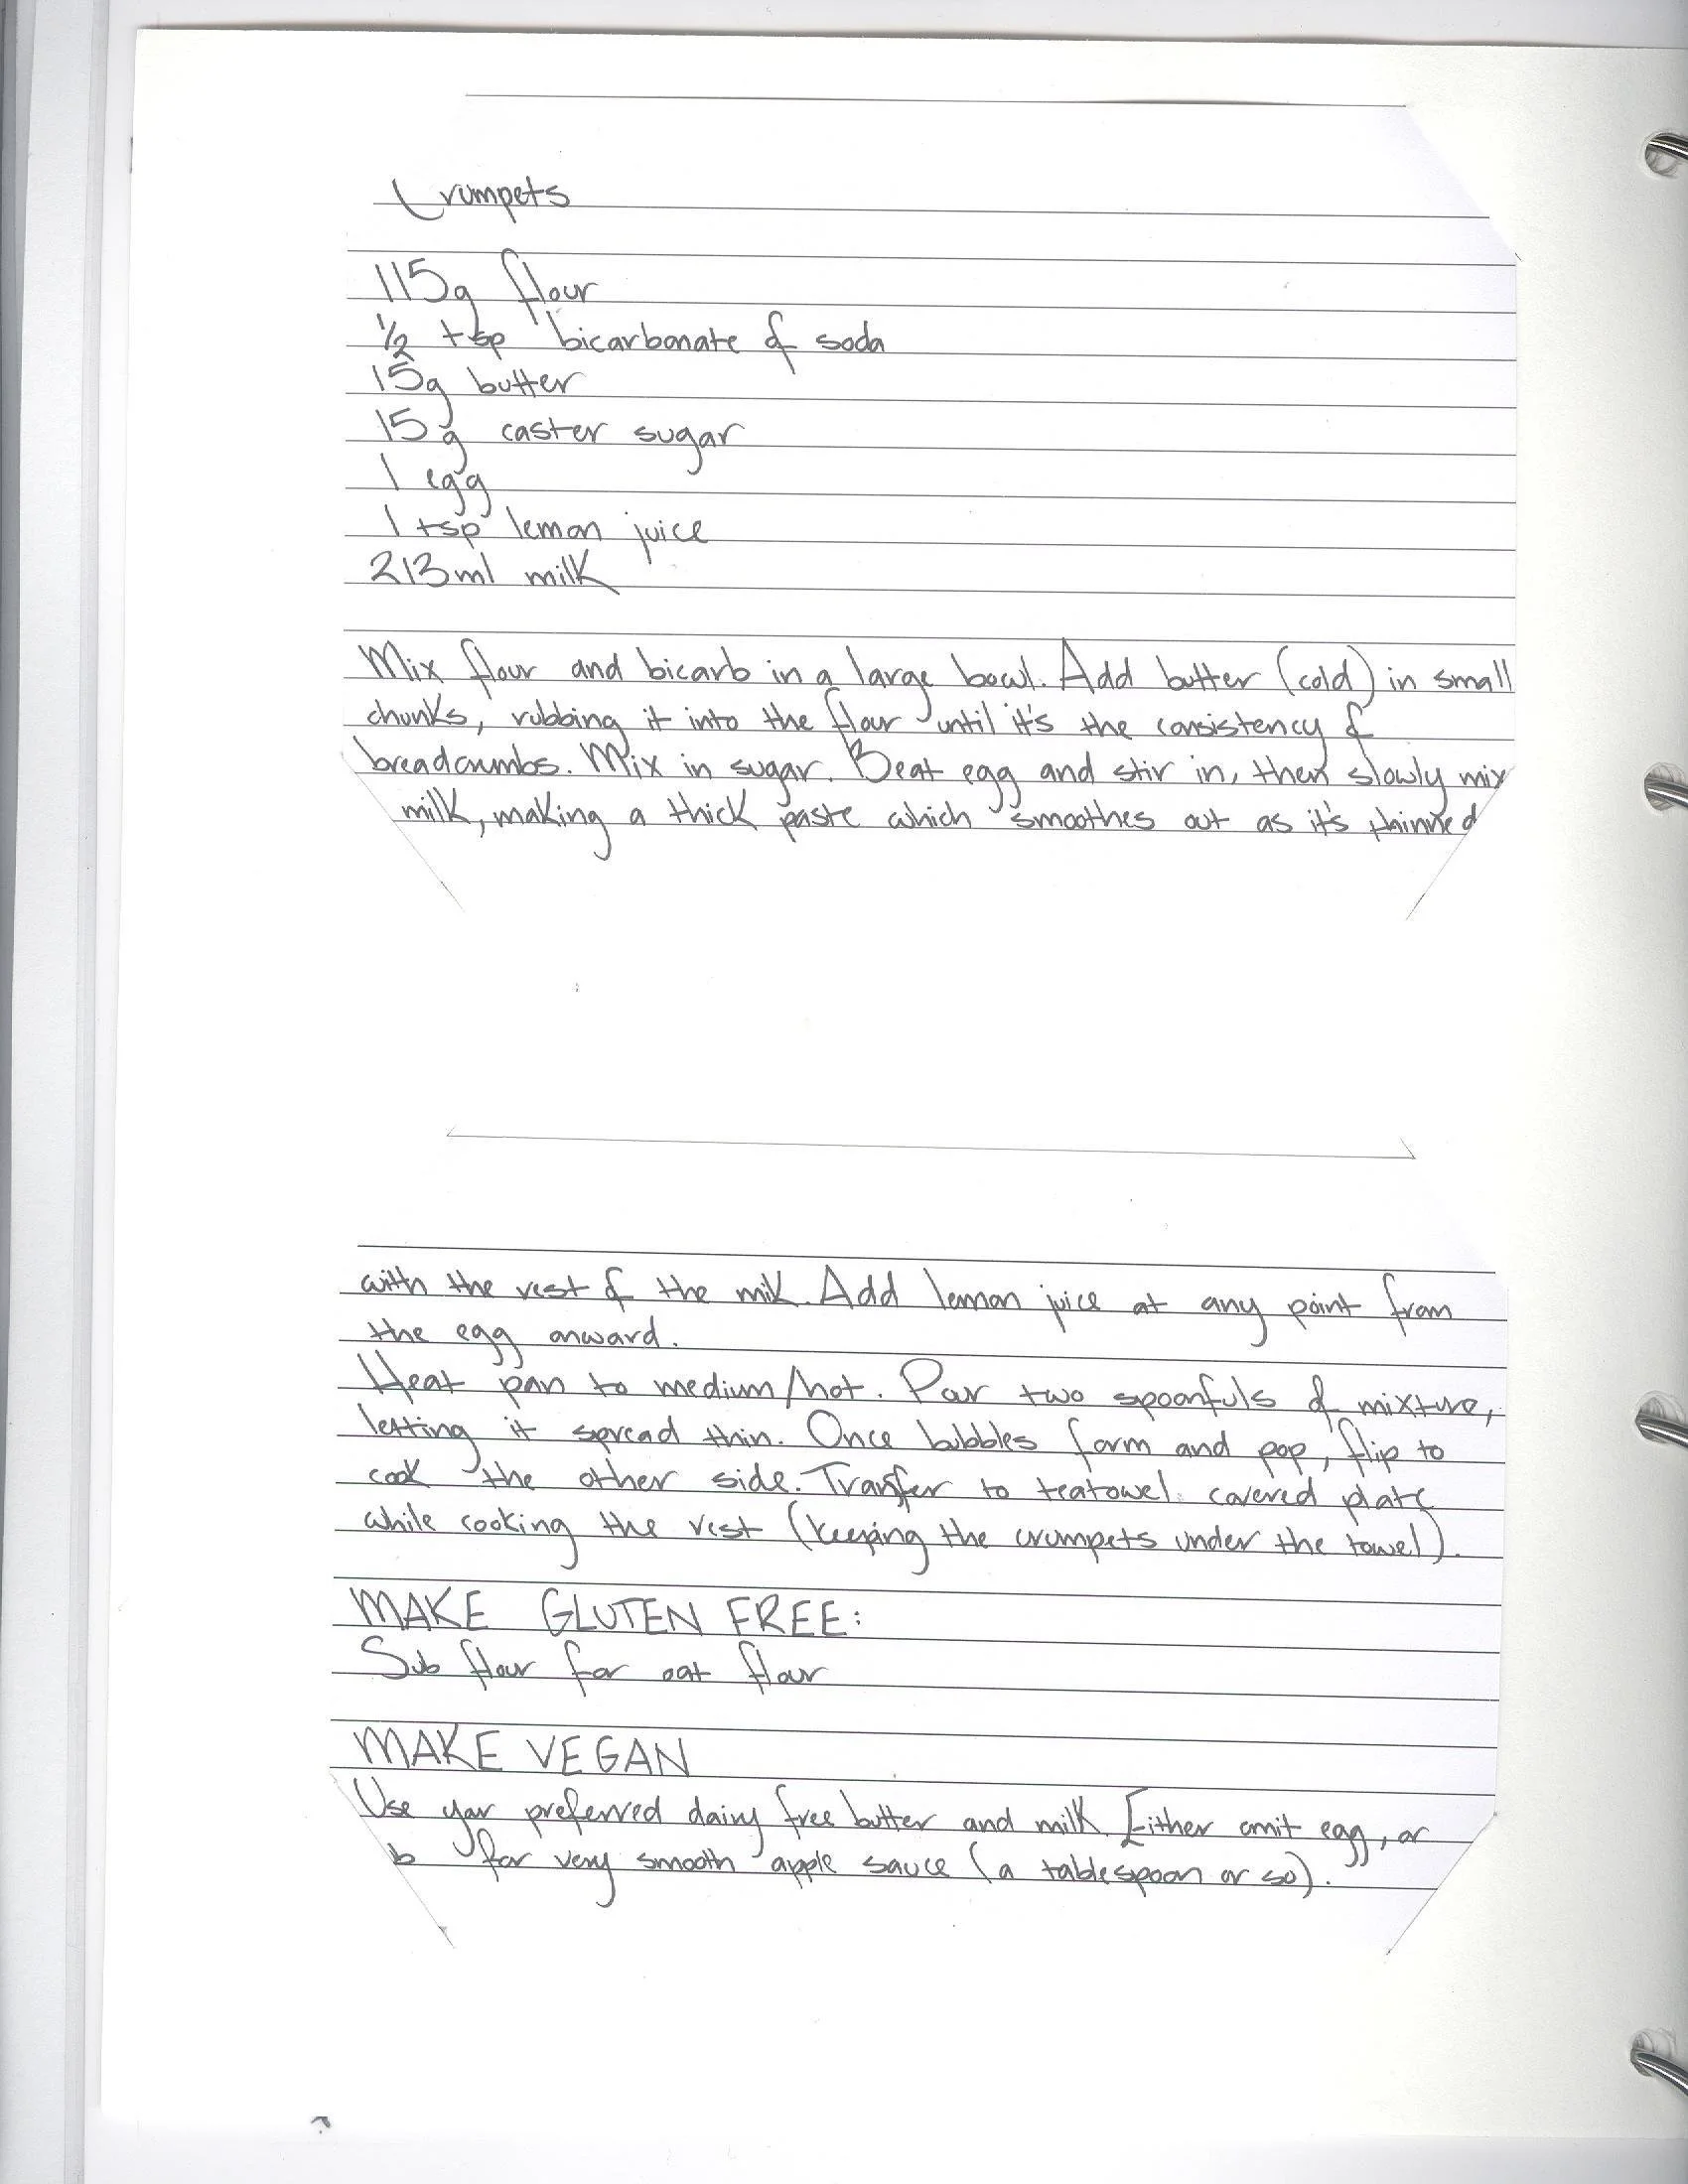 Crumpets
115g flour
1/2 tsp bicarbonate of soda
15g butter
15g caster sugar
1 egg
1 tsp lemon juice
213ml milk
Mix flour and bicarb in a large bowl. Add butter (cold) in small
chunks, rubbing it into the flour until it's the consistency of
breadcrumbs. Mix in sugar. Beat egg and stir in, then slowly mix
milk, making a thick paste which smoothes out as it's thinned
with the rest of the milk. Add lemon juice at any point from
the egg onward.
Heat pan to medium/hot. Pour two spoonfuls of mixture,
letting it spread thin. Once bubbles form and pop, flip to
cook the other side. Transfer to teatowel covered plate
while cooking the rest (keeping the crumpets under the towel).
MAKE GLUTEN FREE:
Sub flour for oat flour
MAKE VEGAN
Use your preferred dairy free butter and milk. Either omit egg, or
b for very smooth apple sauce (a tablespoon or so).